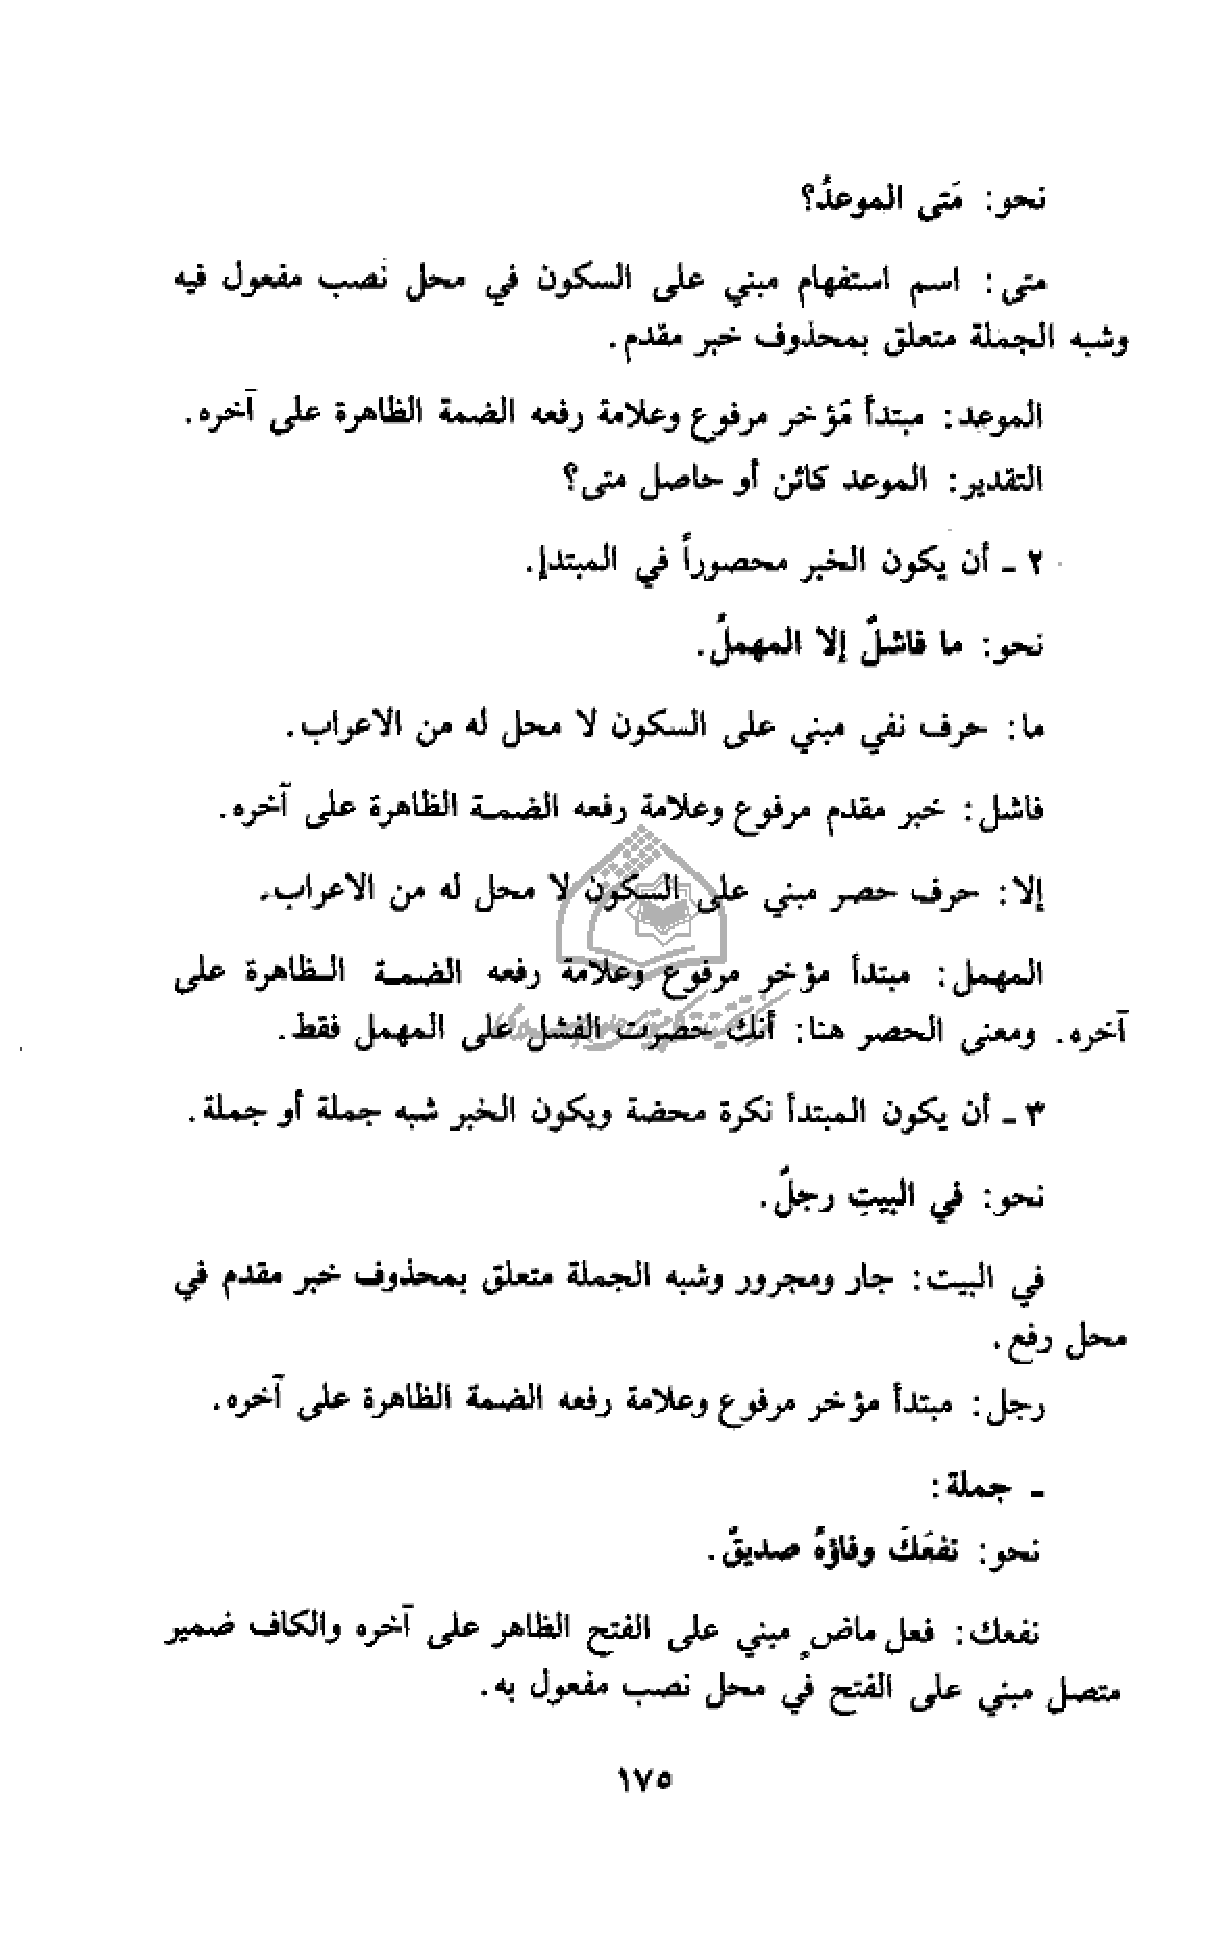 نحو: مَتى الموعدُ؟
متى: اسم استفهام مبني على السكون في محل نصب مفعول فيه
وشبه الجملة متعلق بمحذوف خبر مقدم.
الموعد: مبتدأ مؤخر مرفوع وعلامة رفعه الضمة الظاهرة على آخره.
التقدير: الموعد كائن أو حاصل متى؟
٢ ـ أن يكون الخبر محصوراً في المبتدإ.
نحو: ما فاشلٌ إلا المهملُ.
ما: حرف نفي مبني على السكون لا محل له من الاعراب.
فاشل: خبر مقدم مرفوع وعلامة رفعه الضمـة الظاهرة على آخره.
إلا: حرف حصر مبني على السكون لا محل له من الاعراب.
المهمل: مبتدأ مؤخر مرفوع وعلامة رفعه الضمـة الـظاهرة على
آخره. ومعنى الحصر هنا: أنك حصرت الفشل على المهمل فقط.
٣ ـ أن يكون المبتدأ نكرة محضة ويكون الخبر شبه جملة أو جملة.
نحو: في البيتِ رجلٌ.
في البيت: جار ومجرور وشبه الجملة متعلق بمحذوف خبر مقدم في
محل رفع.
رجل: مبتدأ مؤخر مرفوع وعلامة رفعه الضمة الظاهرة على آخره.
ـ جملة:
نحو: نفعَكَ وفاؤهُ صديقٌ.
نفعك: فعل ماضٍ مبني على الفتح الظاهر على آخره والكاف ضمير
متصل مبني على الفتح في محل نصب مفعول به.
١٧٥